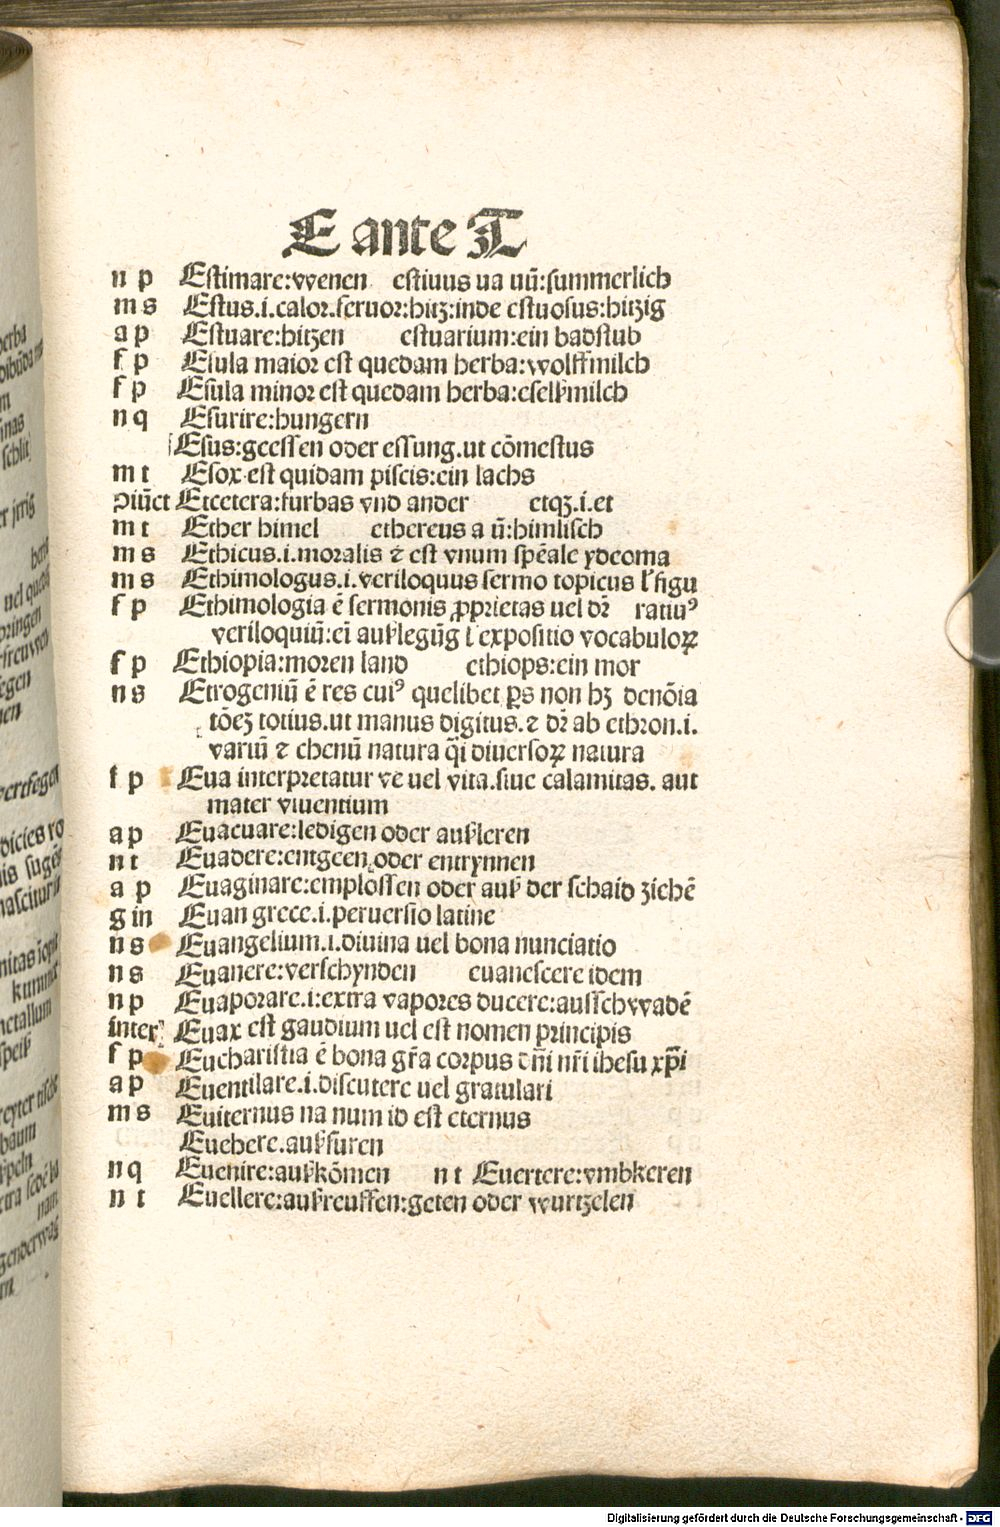 E ante T
n p Estimare:wenen estiuus ua uū:summerlich
m s Estus.i.calor.feruor:hitz:inde estuosus:hitzig
a p Estuare:hitzen estuarium:ein badstub
f p Esula maior est quedam herba:wolffmilch
f p Esula minor est quedam herba:eselßmilch
n q Esurire:hungern
Esus:geessen oder essung.ut cōmestus
m t Esox est quidam piscis:ein lachs
Etcetera:furbas vnd ander etqꝫ.i.et
m t Ether himel ethereus a ū:himlisch
m s Ethicus.i.moralis ⁊ est vnum spēale ydeoma
m s Ethimologus.i.veriloquus sermo topicus lꝰ figu
f p Ethimologia ē sermonis ꝓprietas uel dr̄ ratiuꝰ
veriloquiū:eī außlegūg l expositio vocabuloꝝ
f p Ethiopia:moren land ethiops:ein mor
n s Etrogeniū ē res cuiꝰ quelibet ꝑs non hꝫ denōīa
tōeꝫ totius.ut manus digitus.⁊ dr̄ ab ethron.i.
variū ⁊ chenū natura q̄i diuersoꝝ natura
f p Eua interpretatur ve uel vita.siue calamitas. aut
mater viuentium
a p Euacuare:ledigen oder außleren
n t Euadere:entgeen oder entrynnen
a p Euaginare:emplossen oder auß der schaid ziehē
g in Euan grece.i.peruersio latine
n s Euangelium.i.diuina uel bona nunciatio
n s Euanere:verschynden euanescere idem
n p Euaporare.i:extra vapores ducere:ausschwadē
inter Euax est gaudium uel est nomen principis
f p Eucharistia ē bona gr̄a corpus dn̄i nr̄i ihesu xp̄i
a p Euentilare.i.discutere uel gratulari
m s Euiternus na num id est eternus
Euehere.außfüren
n q Euenire:außkōmen n t Euertere:vmbkeren
n t Euellere:außreuffen:geten oder wurtzelen
Digitalisierung gefördert durch die Deutsche Forschungsgemeinschaft - DFG